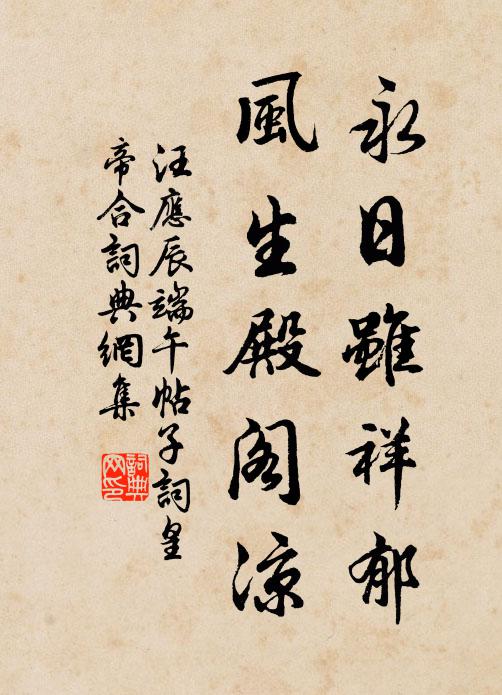 永日雖祥郁
風生殿阁凉
汪應辰端午帖子詞皇
帝合詞典網集
詞典
网印